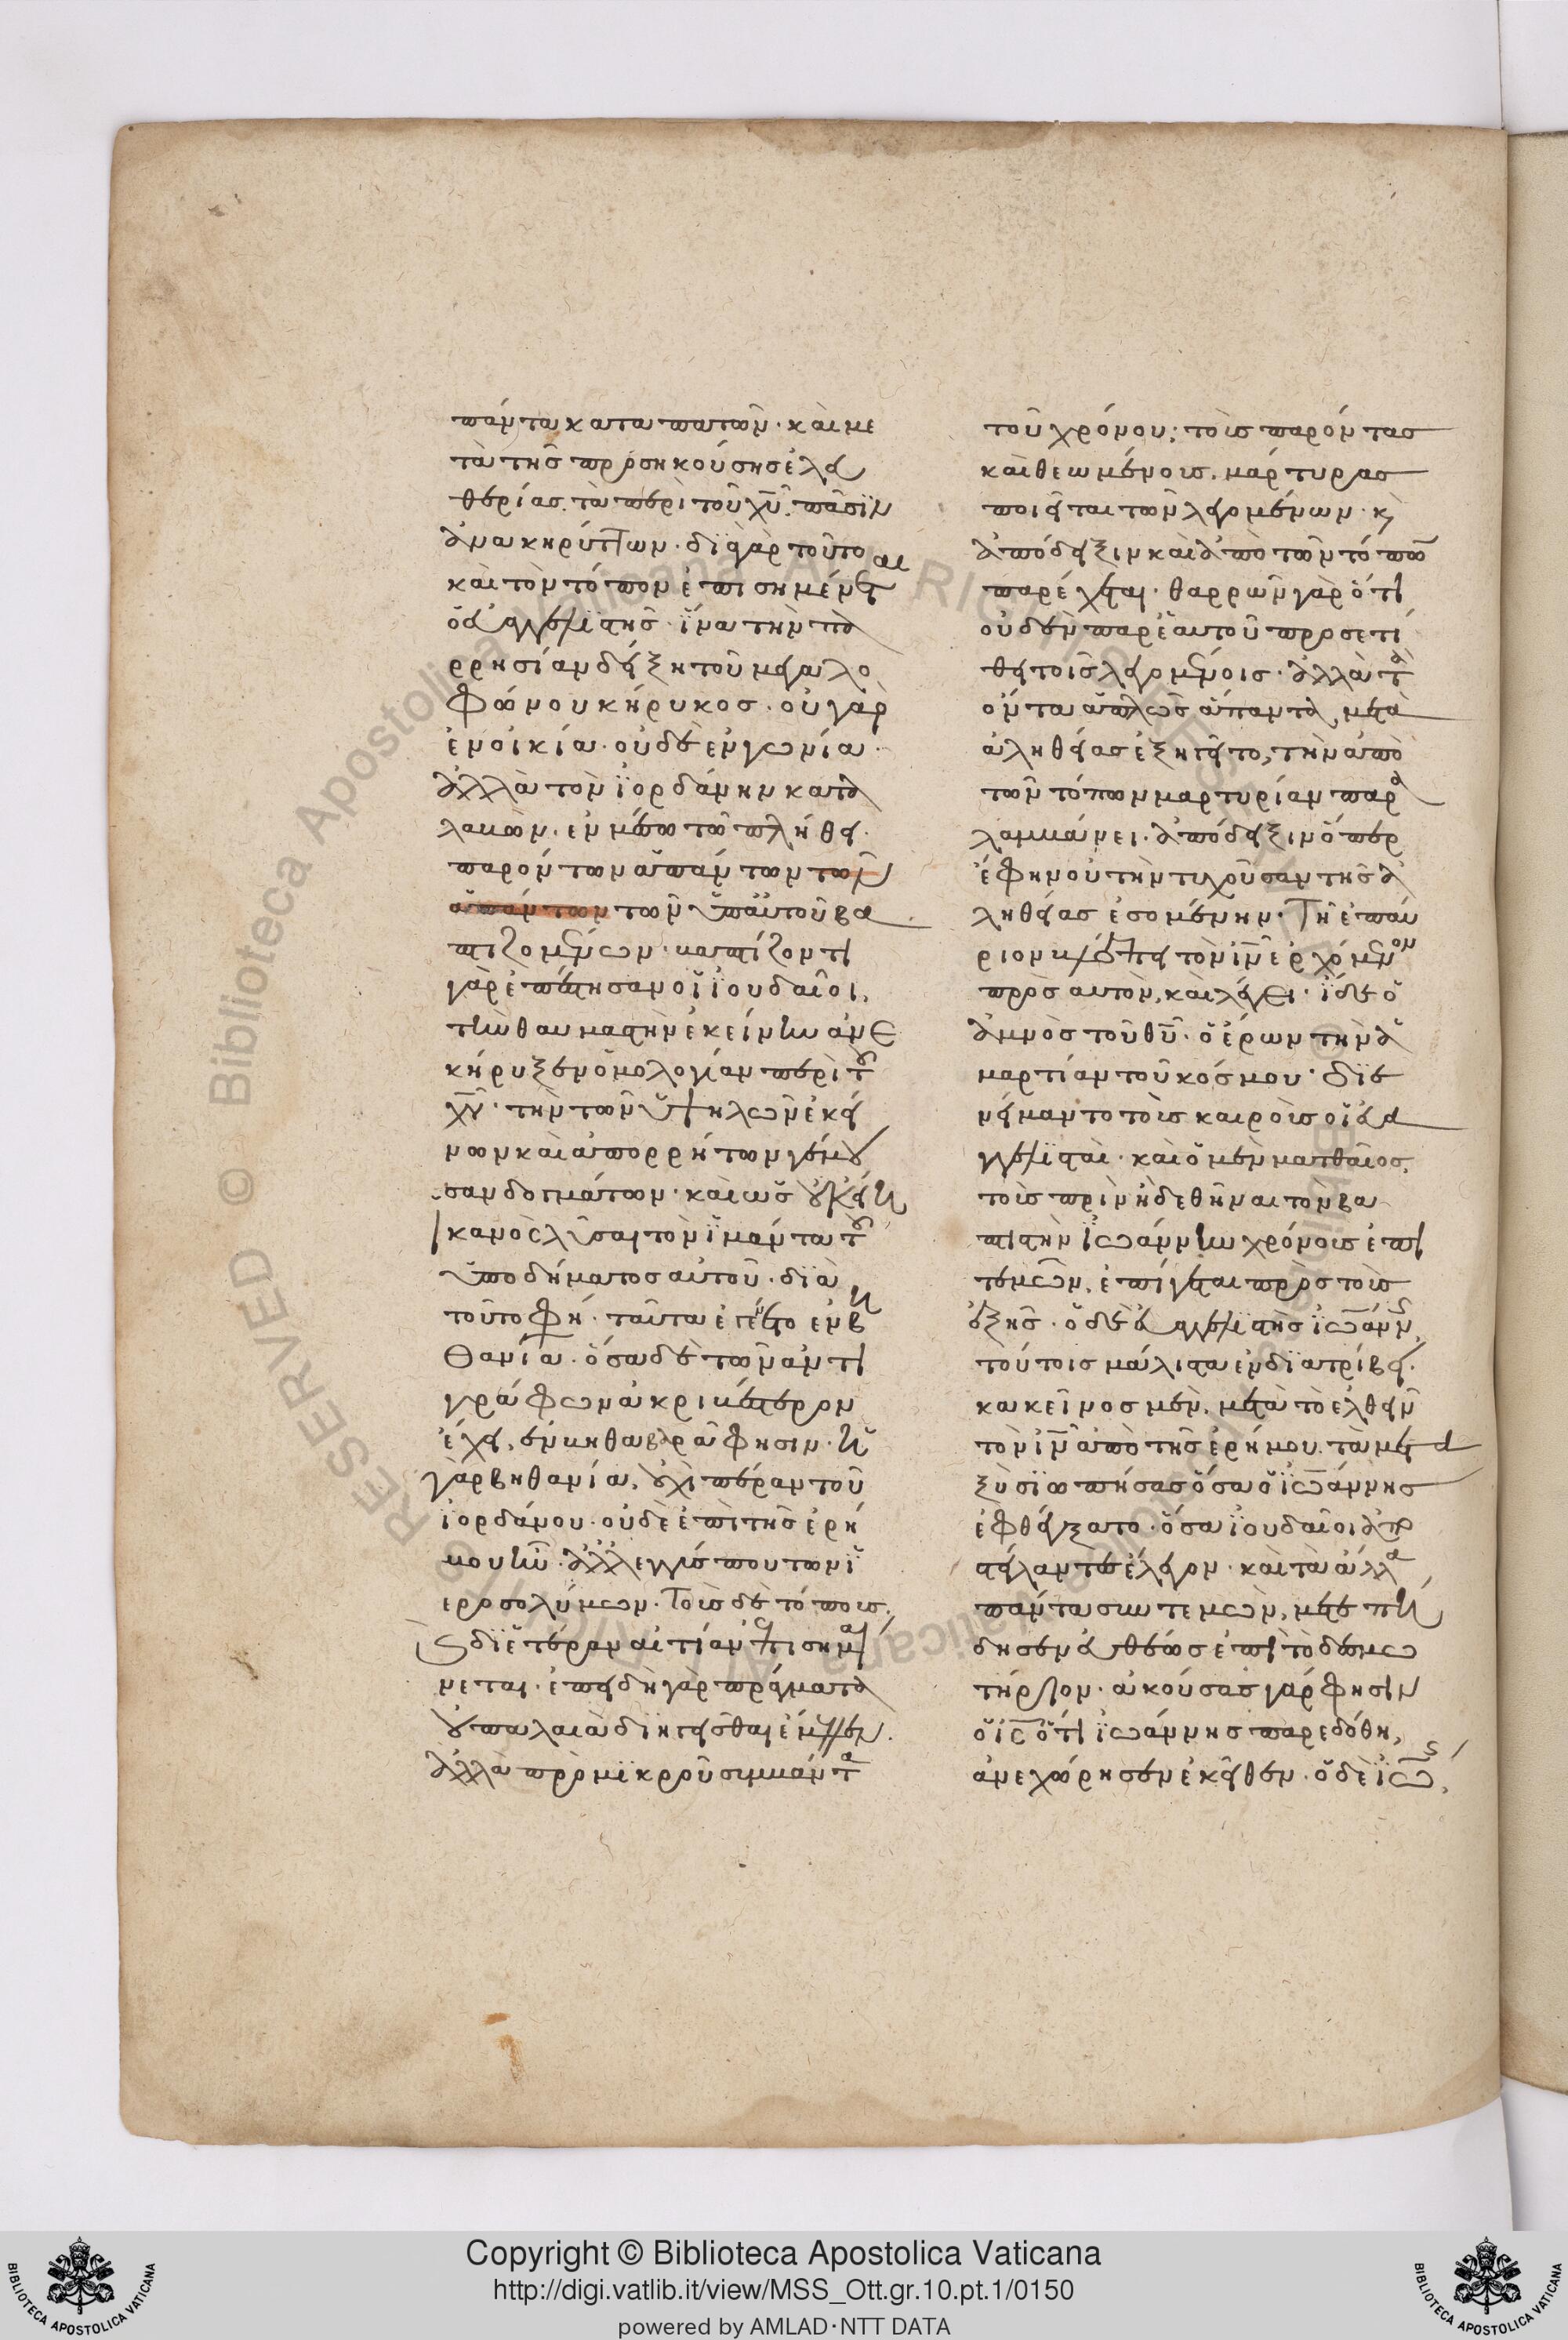 πάντα καταπατῶν· καὶ με
τὰ τῆς προσηκούσης ἐλευ
θερίας. τὰ περὶ τοῦ χῦ. πᾶσϊν
ἀνακηρύττων· δϊὰ γὰρ τοῦτο
καὶ τὸν τόπον ἐπισημαίνεται
ὁ εὐαγγελϊστῆς· ἵνα τὴν πα
ρρησίαν δείξη τοῦ μεγαλο
φώνου κήρυκος· οὐ γὰρ
ἐν οἰκία· οὐδὲ ἐν γωνία·
ἀλλὰ τὸν ϊορδάνην κατα
λαβὼν. ἐν μέσω τῶ πλήθει.
παρόντων ἁπάντων τῶν
ἁπάντων τῶν ὑπ αὐτοῦ βα
πτιζομένων· βαπτίζοντι
γὰρ ἐπέστησαν οἱ ϊουδαῖοι.
τὴν θαυμαστὴν ἐκείνην ἀνε
κήρυξεν ὁμολογίαν περὶ τοῦ
χῦ· τὴν τῶν ὑψηλῶν ἐκεί
νων καὶ ἀπορρήτων γέμου
σαν δογμάτων· καὶ ὡς οὐκ εἴη
ἱκανὸς λῦσαι τὸν ϊμάντα τοῦ
ὑποδήματος αὐτοῦ· δϊὰ
τοῦτο φη. ταῦτα ἐγένετο ἐν βη
θανία. ὅσα δὲ τῶν ἀντι
γράφων ἀκριβέστερον
ἔχει, ἐν βηθαβαρᾶ φησιν· ἡ
γὰρ βηθανία, οὐχὶ πέραν τοῦ
ϊορδάνου. οὐδὲ ἐπὶ τῆς ἐρή
μου ἦν· ἀλλ ἐγγύς που τῶν ϊ
εροσολύμων. Τοὺς δὲ τόπους.
καὶ δϊ ἑτέραν αἰτίαν ἐπισημαί
νεται. ἐπειδὴ γὰρ πράγματα
οὐ παλαιὰ διηγεῖσθαι ἔμελλεν.
ἀλλὰ πρὸ μϊκροῦ συμβάντα
τοῦ χρόνου; τοὺς παρόντας
καὶ θεωμένους. μάρτυρας
ποιεῖται τῶν λεγομένων. κ
ἀπόδειξιν καὶ ἀπὸ τῶν τόπων
παρέχεται· θαρρῶν γὰρ ὅτι
οὐδὲν παρ ἑαυτοῦ προσετί
θει τοῖς λεγομένοις· ἀλλὰ τὰ
ὄντα ἁπλῶς ἅπαντα, μετὰ
ἀληθείας ἐξηγεῖτο, τὴν ἀπὸ
τῶν τόπων μαρτυρίαν παρα
λαμβάνει. ἀπόδειξιν ὅπερ
ἔφην οὐ τὴν τυχοῦσαν τῆς ἀ
ληθείας ἐσομένην· Τῆ ἐπαύ
ριον βλέπει τὸν ϊν ἐρχόμενον
πρὸς αὐτὸν, καὶ λέγει· ϊδε ὁ
ἀμνὸς τοῦ θῦ· ὁ αἴρων τὴν ἁ
μαρτίαν τοῦ κόσμου· Δϊε
νείμαντο τοὺς καιροὺς οἱ εὐα
γγελϊσταὶ· καὶ ὁ μὲν ματθαῖος.
τοὺς πρὶν ἢ δεθῆναι τὸν βα
πτιστὴν ϊωάννην χρόνους ἐπι
τεμὼν, ἐπείγεται πρὸς τοὺς
ἑξῆς· ὁ δὲ εὐαγγελϊστὴς ϊωάννης
τούτοις μάλιστα ἐνδϊατρίβει.
κακεῖνος μὲν, μετὰ τὸ ἐλθεῖν
τὸν ϊν ἀπὸ τῆς ἐρήμου. τὰ μετα
ξὺ σϊωπήσας ὅσα ὁ ϊωάννης
ἐφθέγξατο. ὅσα ϊουδαῖοι ἀπο
στείλαντες ἔλεγον. καὶ τὰ ἄλλα
πάντα συντεμὼν, μετεπή
δησεν εὐθέως ἐπὶ τὸ δεσμω
τήριον· ἀκούσας γάρ φησιν
ὁ ις ὅτι ϊωάννης παρεδόθη,
ἀνεχώρησεν ἐκεῖθεν. ὁ δὲ ϊω.
Copyright © Biblioteca Apostolica Vaticana
http://digi.vatlib.it/view/MSS_Ott.gr.10.pt.1/0150
powered by AMLAD·NTT DATA